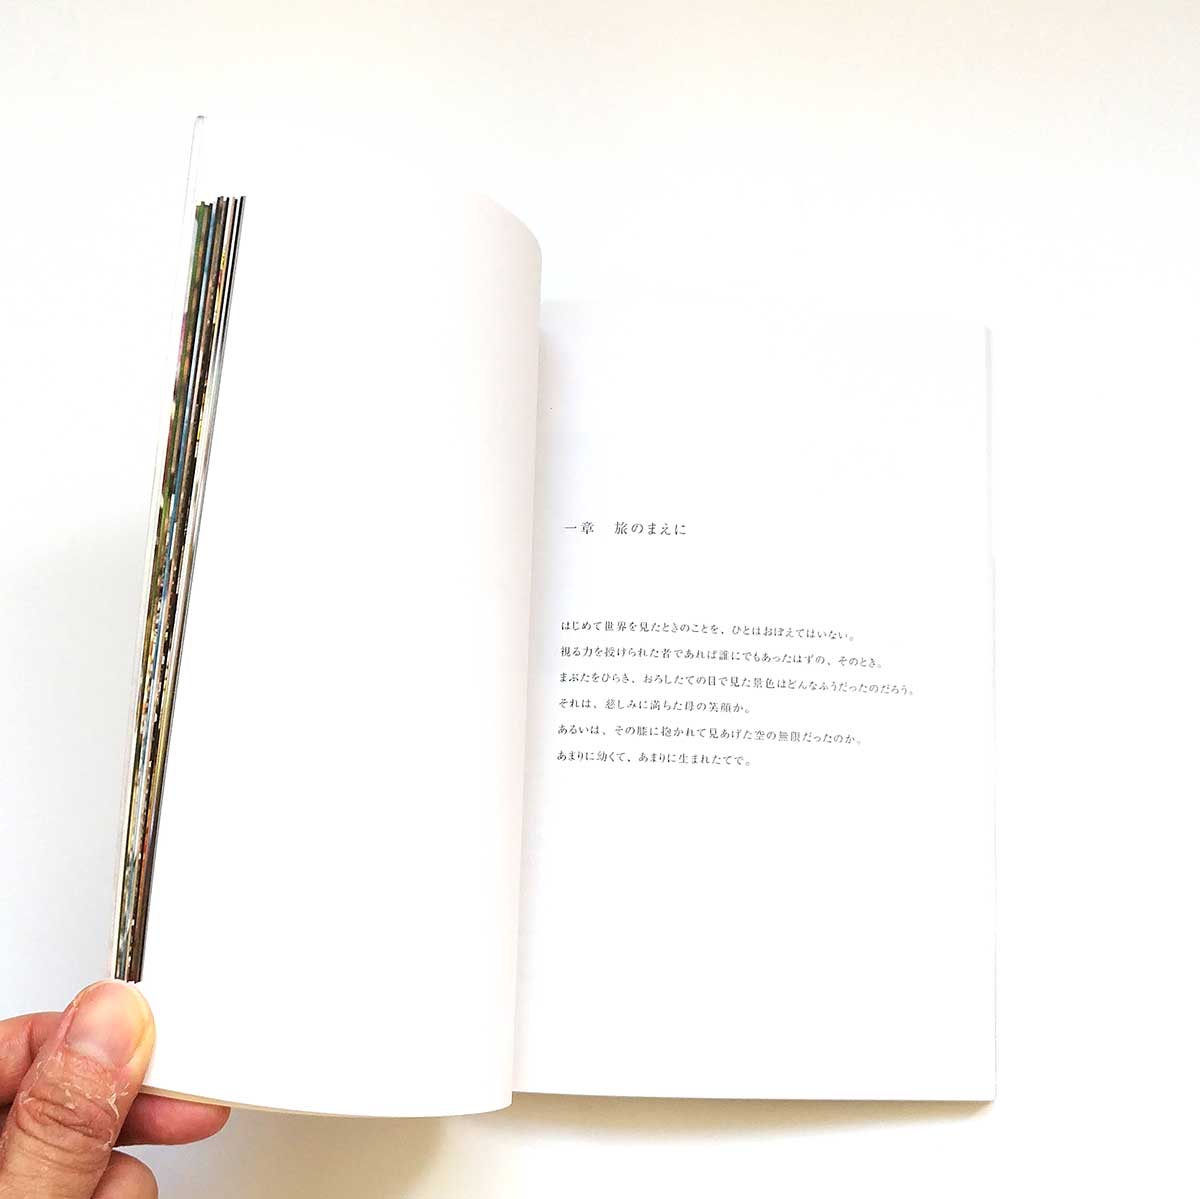 一章　旅のまえに
はじめて世界を見たときのことを、ひとはおぼえてはいない。
視る力を授けられた者であれば誰にでもあったはずの、そのとき。
まぶたをひらき、おろしたての目で見た景色はどんなふうだったのだろう。
それは、慈しみに満ちた母の笑顔か。
あるいは、その膝に抱かれて見あげた空の無限だったのか。
あまりに幼くて、あまりに生まれたてで。